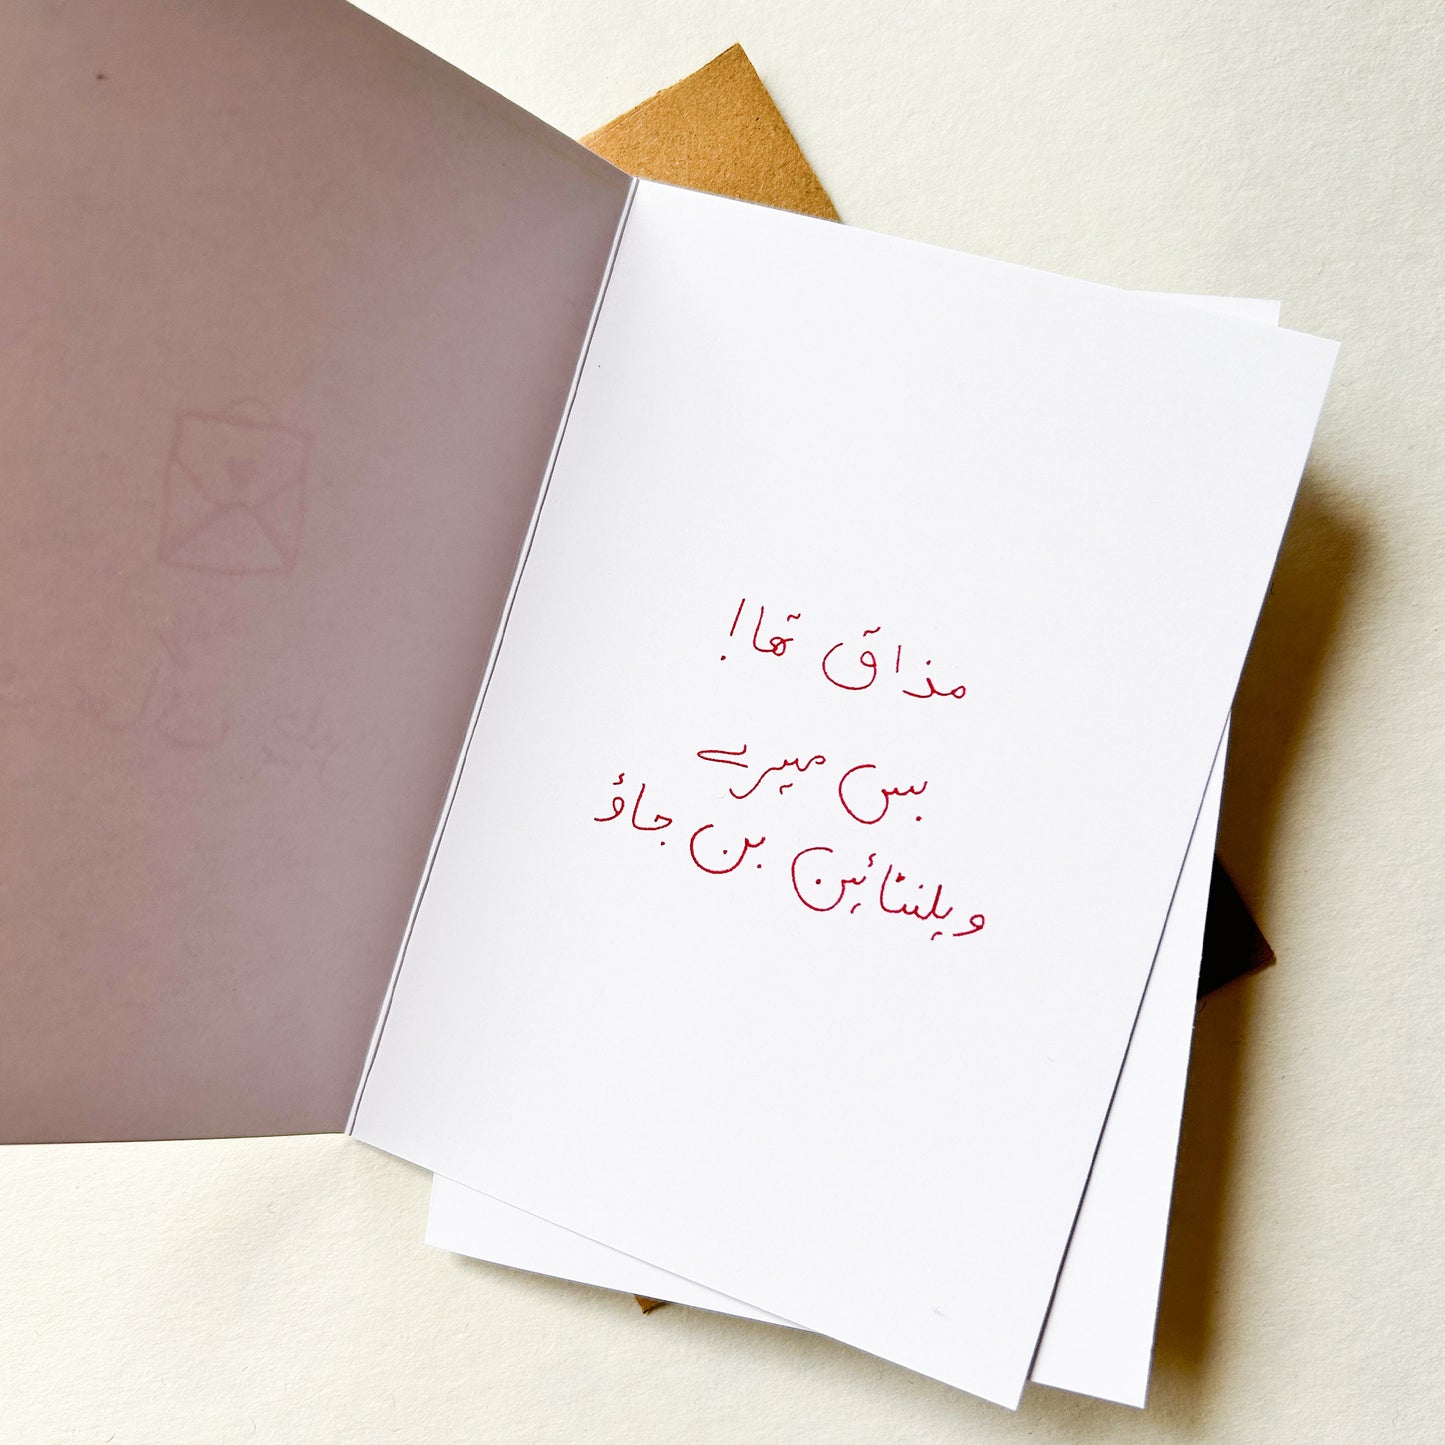 مذاق تھا!
بس میرے
ویلنٹائین بن جاؤ